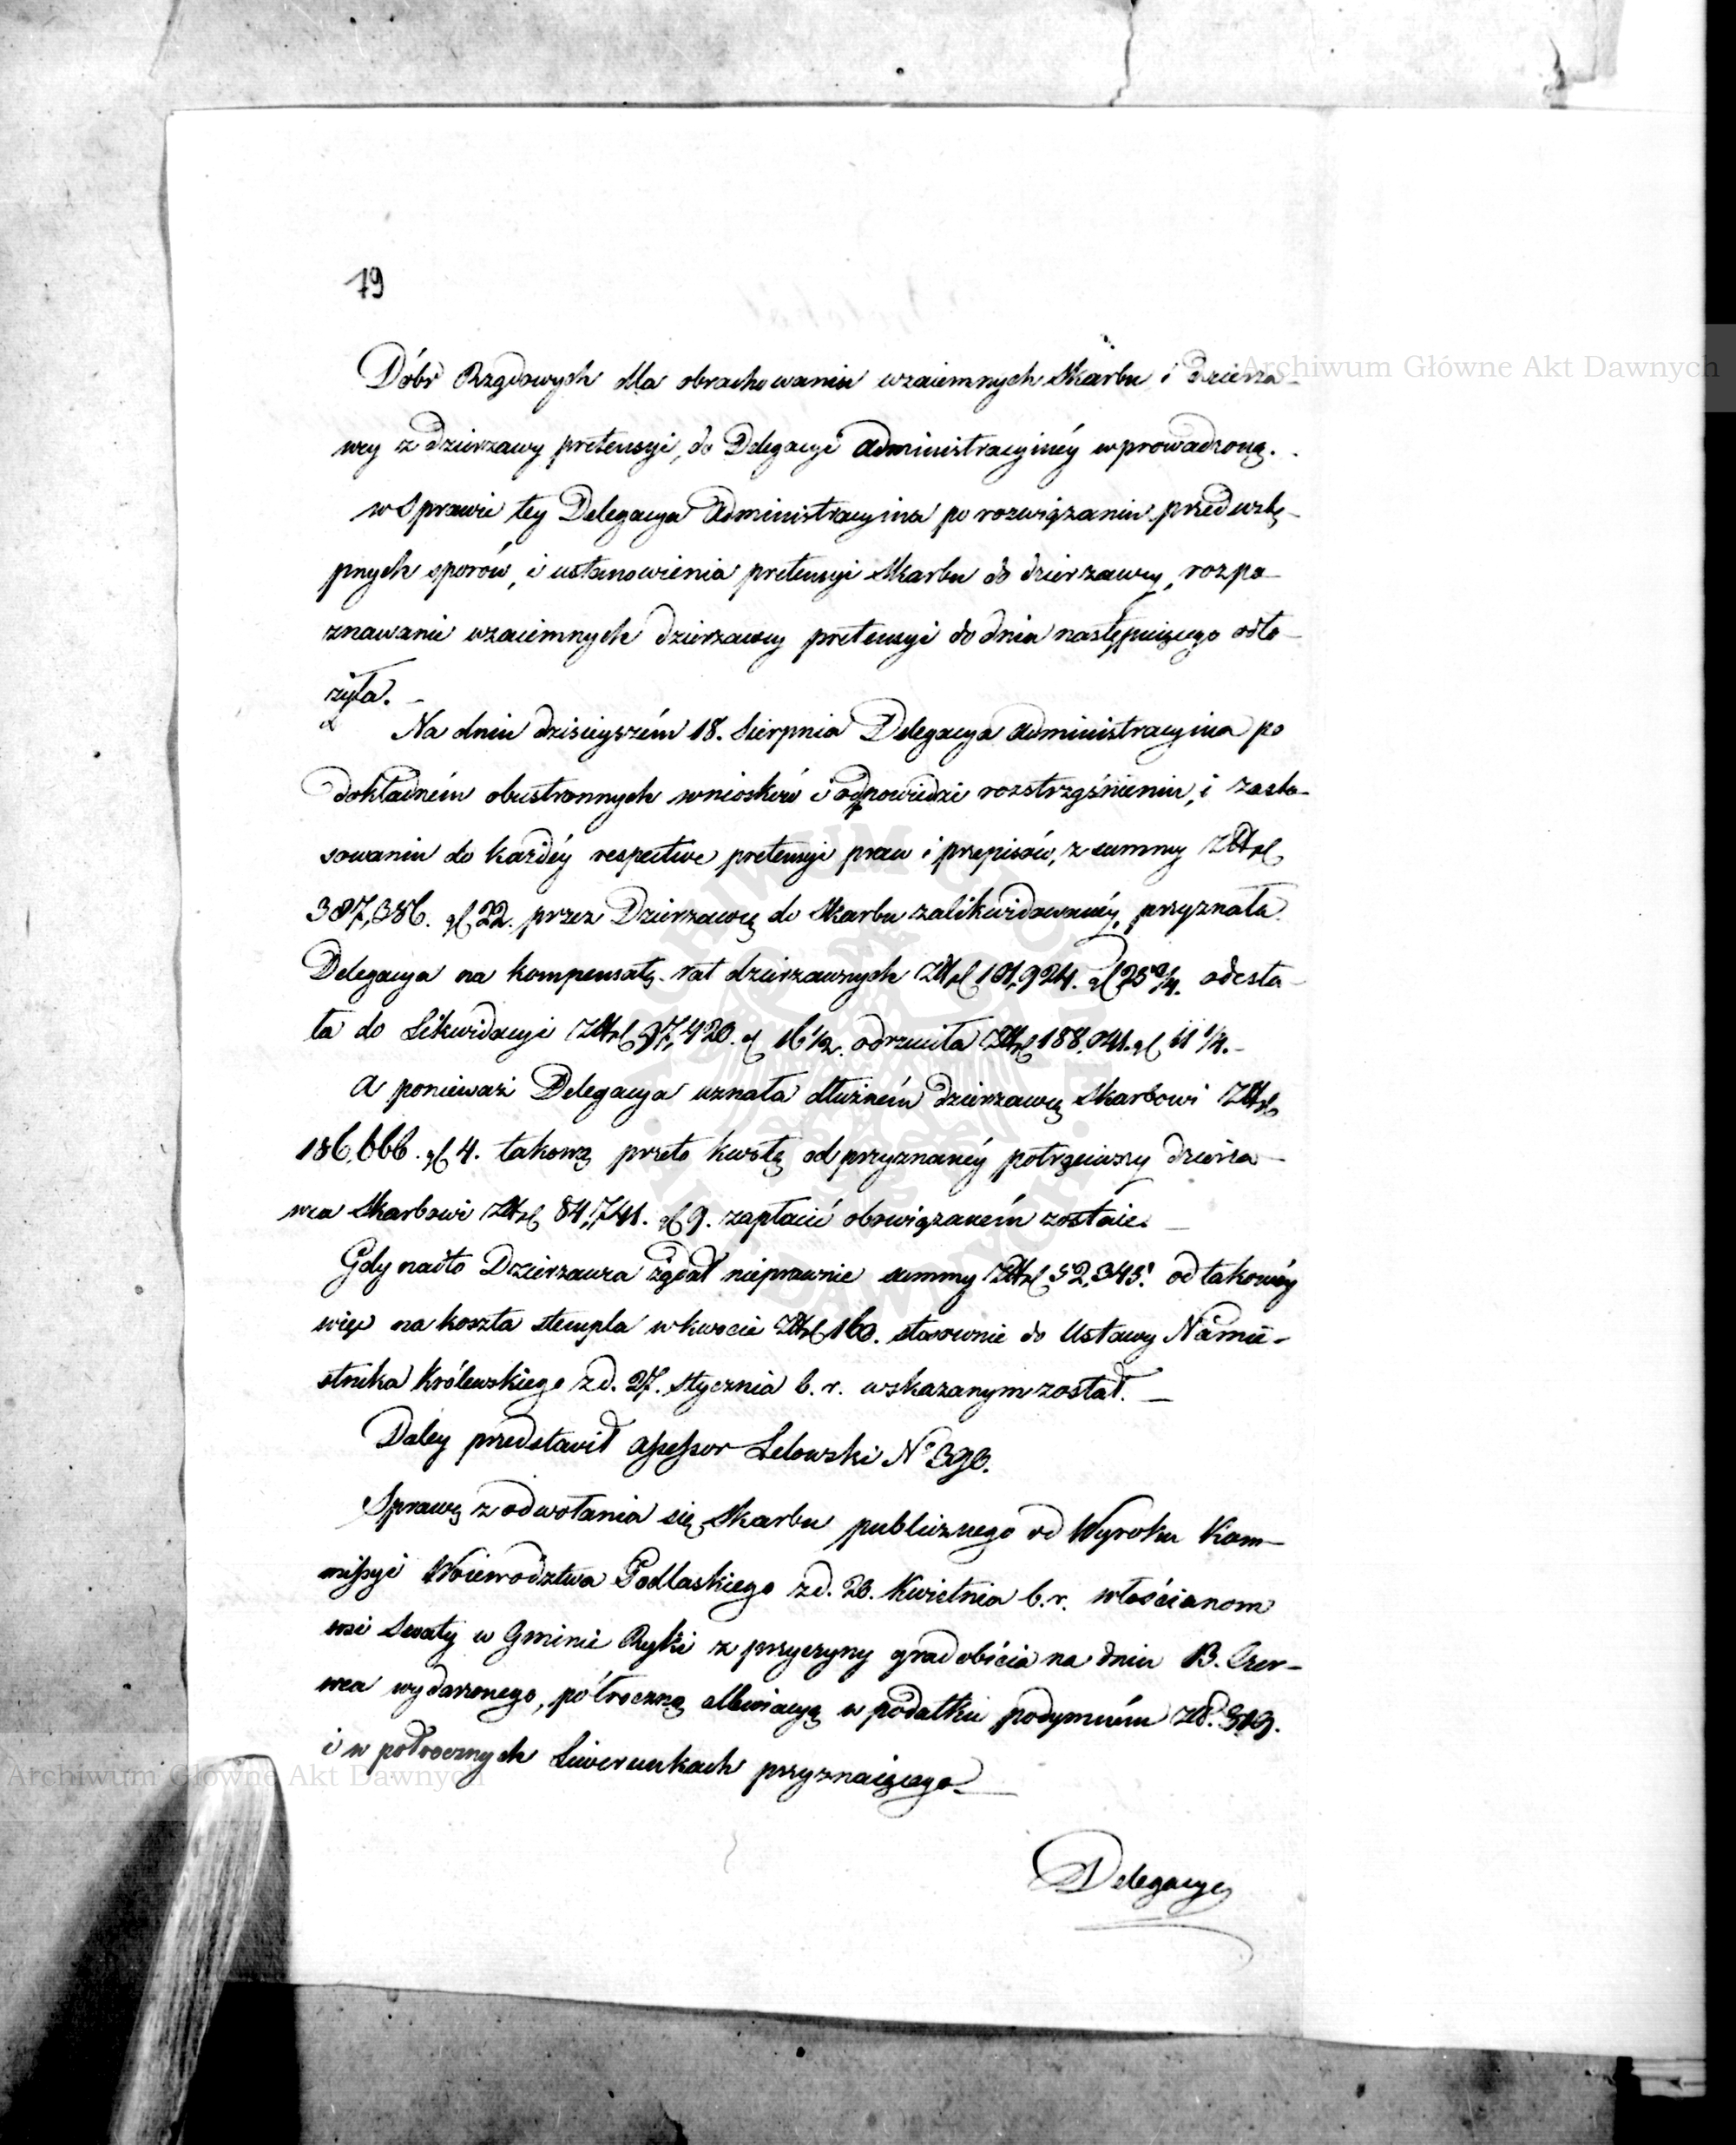 19
Archiwum Główne Akt Dawnych
Dóbr Rządowych dla obrachowania wzaiemnych Skarbu i dzierza-
wcy z dzierzawy pretensyi, do Delegacyi Administracyinéy wprowadzoną.
w Sprawie tey Delegacya Administracyina po rozwiązaniu przedwstę-
pnych sporów, i ustanowienia pretensyi Skarbu do dzierzawcy, rozpo-
znawanie wzaiemnych dzierzawcy pretensyi do dnia następuiącego odło-
zyła. -
Na dniu dzisieyszém 18. Sierpnia Delegacya Administracyina po
dokładném obustronnych wniosków i odpowiedzi rozstrząśnieniu, i zasto-
sowaniu do każdéy respective pretensyi praw i przepisów, z summy Złłpl
387,386. gl 22. przez Dzierzawcę do Skarbu zalikwidowanéy, przyznała
Delegacya na kompensatę rat dzierzawnych Złłpl 101,924. gl 25 2/4. odesła-
ła do Likwidacyi Złłpl 97,420. gl 16 1/2. odrzuciła Złłpl 188,041. gl 11 1/4. -
A ponieważ Delegacya uznała dłużném dzierzawcę Skarbowi Złłpl
186,666. gl 4. takową przeto kwotę od przyznanéy potrąciwszy dzierza-
wca Skarbowi Złłpl 84,741. gl 9. zapłacić obowiązaném zostaie. -
Gdy nadto Dzierzawca żądał nieprawnie summy Złłpl 52,345. od takowéy
więc na koszta stempla w kwocie Złłpl 160. stosownie do Ustawy Namie-
stnika Królewskiego z d. 27. stycznia b. r. wskazanym został. -
Daley przedstawił assessor Lelowski No 390.
Sprawę z odwołania się Skarbu publicznego od Wyroku Kom-
missyi Woiewodztwa Podlaskiego z d. 20. Kwietnia b. r. włościanom
wsi Swaty w Gminie Ryki z przyczyny gradobicia na dniu 13. Czer-
wca wydarzonego, półroczną allewiacyą w podatku podymném zł. 319.
i w połrocznych Liwerunkach przyznaiącego -
Archiwum Główne Akt Dawnych
Delegacya